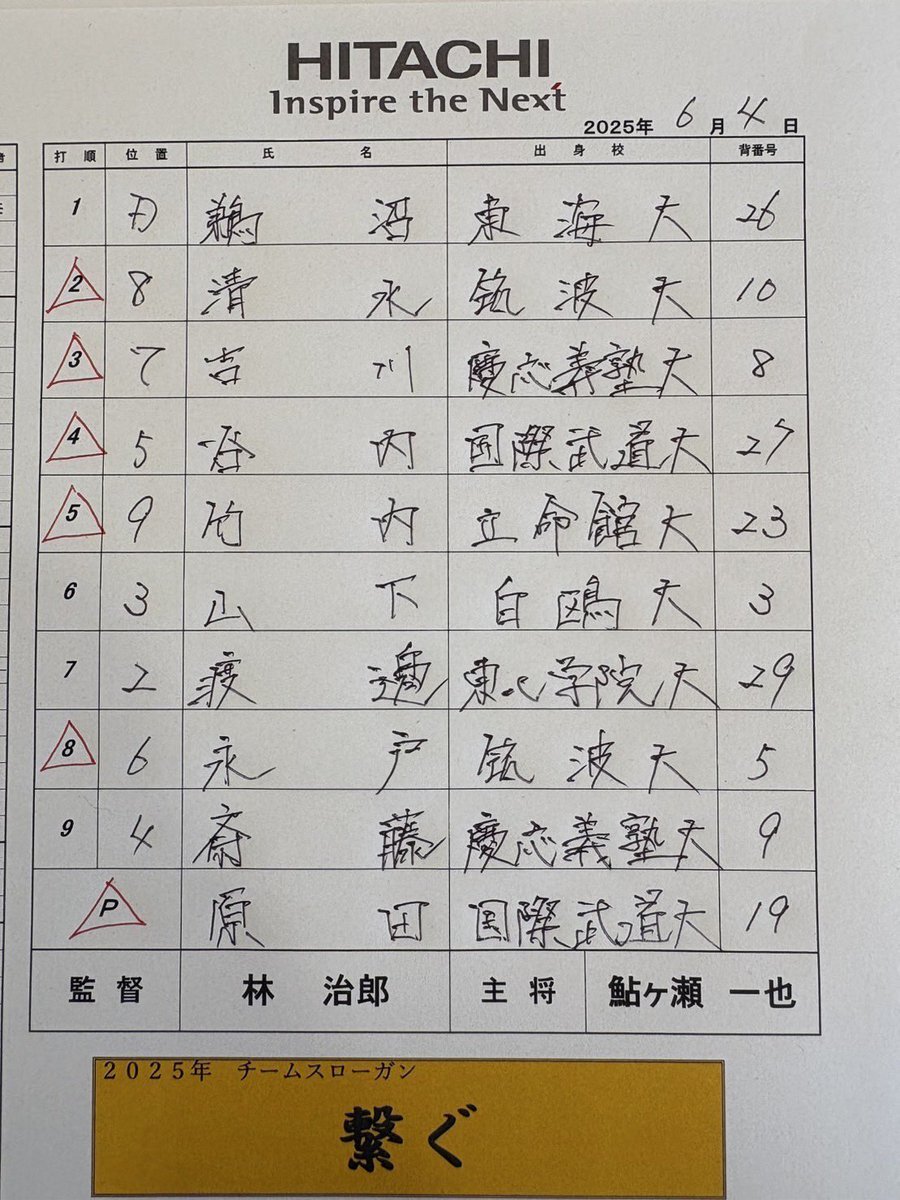 HITACHI
Inspire the Next
2025年 6月 4日
打順 位置 氏名 出身校 背番号
1 D 鵜沼 東海大 26
2 8 清水 筑波大 10
3 7 吉川 慶応義塾大 8
4 5 谷内 国際武道大 27
5 9 竹内 立命館大 23
6 3 山下 白鴎大 3
7 2 渡邊 東北学院大 29
8 6 永戸 筑波大 5
9 4 斎藤 慶応義塾大 9
P 原田 国際武道大 19
監督 林 治郎 主将 鮎ヶ瀬 一也
2025年 チームスローガン
繋ぐ